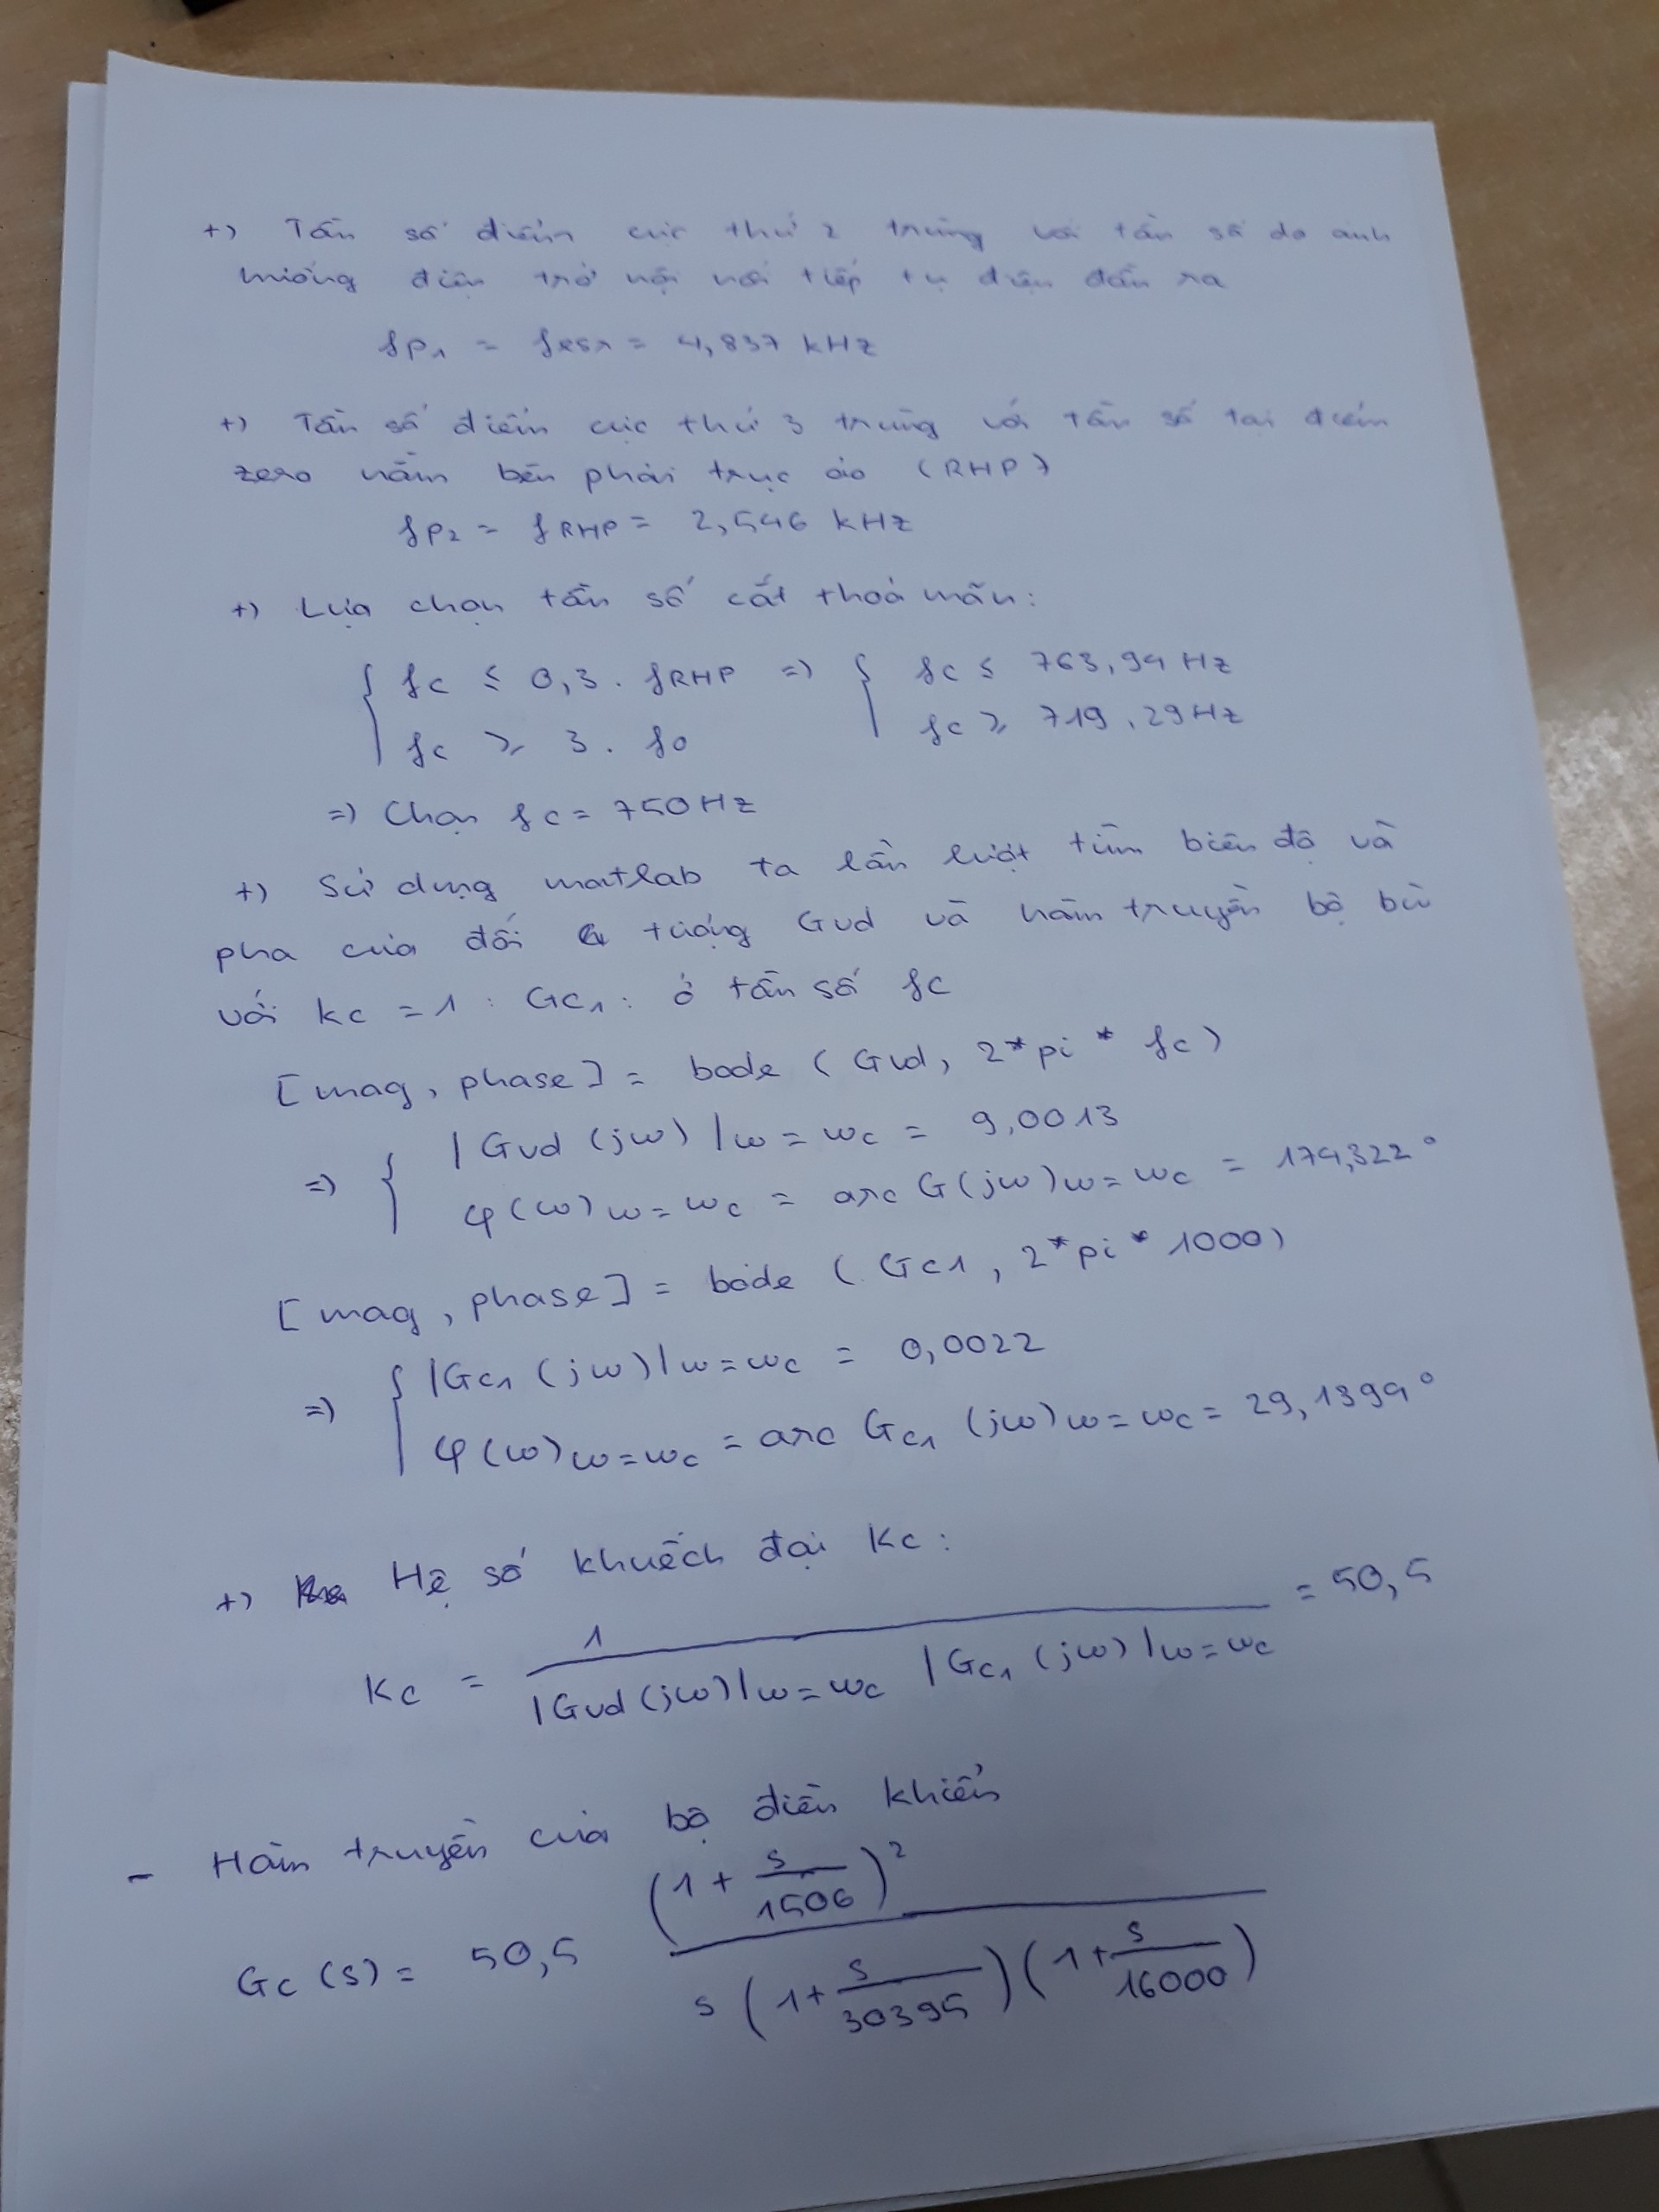 +) Tần số điểm cực thứ 2 trùng với tần số do ảnh
hưởng điện trở nội nối tiếp tụ điện đầu ra
fP1 = fESR = 4,837 kHz
+) Tần số điểm cực thứ 3 trùng với tần số tại điểm
zero nằm bên phải trục ảo (RHP)
fP2 = fRHP = 2,546 kHz
+) Lựa chọn tần số cắt thoả mãn:
{ fc ≤ 0,3 . fRHP => { fc ≤ 763,94 Hz
fc ≥ 3 . f0 fc ≥ 719,29 Hz
=> Chọn fc = 750 Hz
+) Sử dụng matlab ta lần lượt tìm biên độ và
pha của đối tượng Gvd và hàm truyền bộ bù
với kc = 1 : Gc1 : ở tần số fc
[mag, phase] = bode (Gvd, 2*pi * fc)
=> { |Gvd (jω)|ω=ωc = 9,0013
φ(ω)ω=ωc = arc G(jω)ω=ωc = 174,322°
[mag, phase] = bode (Gc1, 2*pi * 1000)
=> { |Gc1 (jω)|ω=ωc = 0,0022
φ(ω)ω=ωc = arc Gc1 (jω)ω=ωc = 29,1394°
+) Hệ số khuếch đại Kc :
Kc = 1 / (|Gvd (jω)|ω=ωc |Gc1 (jω)|ω=ωc) = 50,5
- Hàm truyền của bộ điều khiển
Gc (s) = 50,5 (1 + s/1506)² / (s (1 + s/30395) (1 + s/16000))